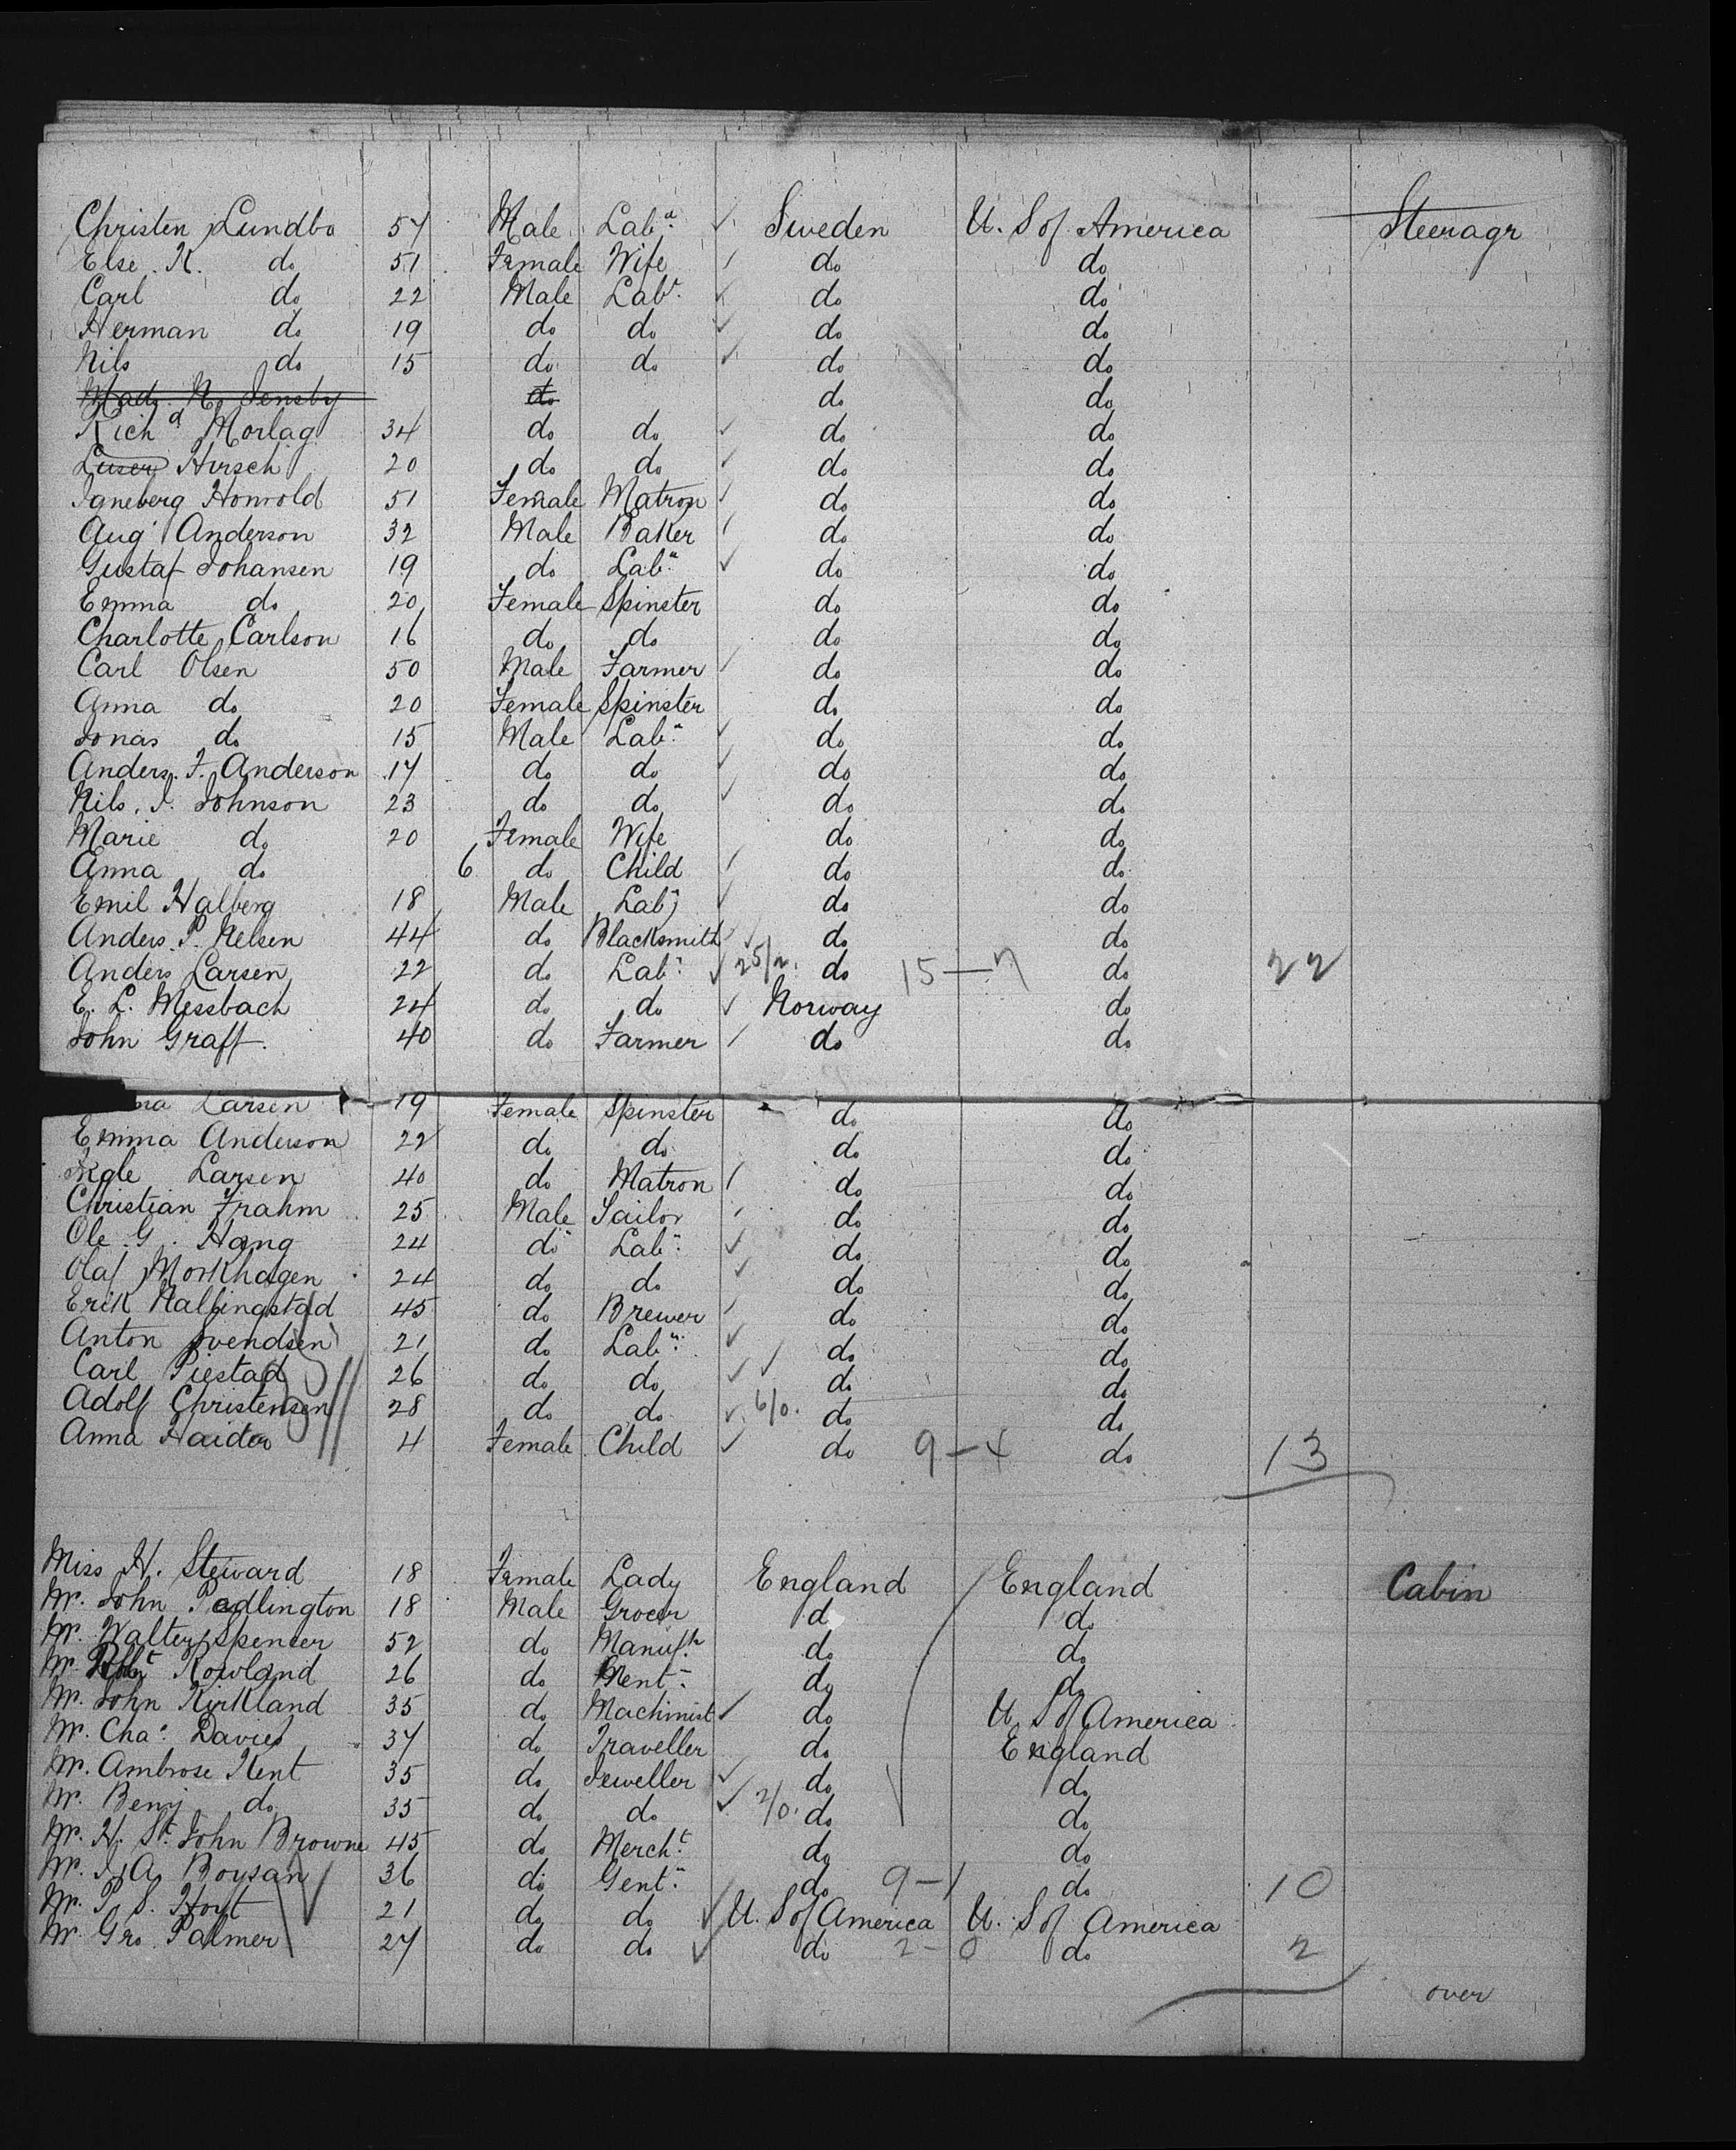 Christen Lundbo 57 Male Labr Sweden U. S of America Steerage
Else. K. do 51 Female Wife do do
Carl do 22 Male Labr do do
Herman do 19 do do do do
Nils do 15 do do do do
Mads N. Jensby do do do
Richd Morlag 34 do do do do
Luser Hirsch 20 do do do do
Igneberg Honrold 51 Female Matron do do
Aug Anderson 32 Male Baker do do
Gustaf Johansen 19 do Labr do do
Emma do 20 Female Spinster do do
Charlotte Carlson 16 do do do do
Carl Olsen 50 Male Farmer do do
Anna do 20 Female Spinster do do
Jonas do 15 Male Labr do do
Anders. F. Anderson 17 do do do do
Nils. J. Johnson 23 do do do do
Marie do 20 Female Wife do do
Anna do 6 do Child do do
Emil Halberg 18 Male Labr do do
Anders. P. Nelsen 44 do Blacksmith do do
Anders Larsen 22 do Labr 25/2. do 15-7 do 22
E. L. Messbach 24 do do Norway do
John Graff. 40 do Farmer do do
na Larsen 19 Female Spinster do do
Emma Anderson 22 do do do do
Larsen 40 do Matron do do
Christian Frahm 25 Male Sailor do do
Ole. G. Hang 24 do Labr do do
Olaf Morkhagen 24 do do do do
Erik Hallingstad 45 do Brewer do do
Anton Svendsen 21 do Labr do do
Carl Piestad 26 do do do do
Adolf Christensen 28 do do 6/0. do do
Anna Haidor 4 Female Child do 9-4 do 13
Miss H. Steward 18 Female Lady England England Cabin
Mr. John Padlington 18 Male Grocer do do
Mr. Walter Spencer 52 do Manufr do do
Mr. Robt Rowland 26 do Gent do do
Mr. John Kirkland 35 do Machinist do U. S of America
Mr. Chas Davies 37 do Traveller do England
Mr. Ambrose Kent 35 do Jeweller do do
Mr. Benj do 35 do do 2/0. do do
Mr. H. St. John Browne 45 do Mercht do do
Mr. J. A. Boysan 36 do Gent. do 9-1 do 10
Mr. P. S. Hoyt 21 do do U. S of America U. S of America
Mr. Geo Palmer 27 do do do 2-0 do 2
over